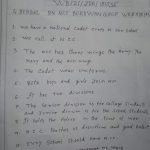 1. We have a National Cadet corps in our School
2. We call it N.C.C
3. The NCC has three wings the Army the
Navy and the air wing.
4. The Cadet wear uniforms
5. Both boys and girls join NCC
6. It has two divisions
7. The Senior division is for college students
and Junior division is for the school students
8. It helps the Police in the time of
9. N.C.C. teaches us discipline and good habits
10. Every School should have N.C.C.